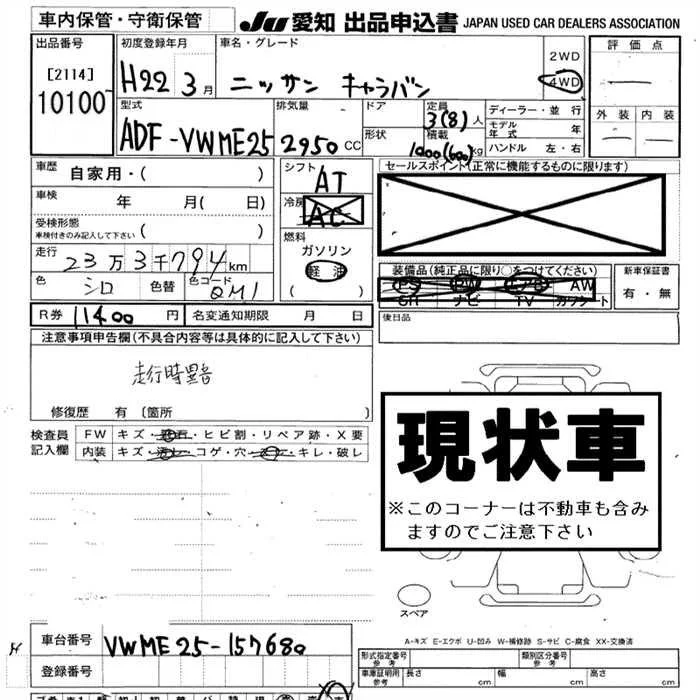 車内保管・守衛保管
JU 愛知 出品申込書 JAPAN USED CAR DEALERS ASSOCIATION
出品番号
[2114]
10100
初度登録年月
H22 3月
車名・グレード
ニッサン キャラバン
2WD
4WD
評価点
外装 内装
型式
ADF-VWME25
排気量
2950 CC
ドア
形状
定員
3(8)人
積載
1000(600)kg
ディーラー・並行
モデル年式 年
ハンドル 左・右
車歴 自家用・( )
車検 年 月( 日)
受検形態
車検付きのみ記入して下さい ( )
走行
23万3千794km
色 シロ 色替 色コード QM1
シフト AT
冷房 AC
燃料
ガソリン
軽油
( )
セールスポイント(正常に機能するものに限ります)
装備品(純正品に限り○をつけてください)
PS PW エアB AW
SR ナビ TV カワシート
新車保証書
有・無
R券 11400 円 名変通知期限 月 日
後日品
注意事項申告欄(不具合内容等は具体的に記入して下さい)
修復歴 有 〔箇所 〕
検査員記入欄
FW キズ・飛石・ヒビ割・リペア跡・X要
内装 キズ・汚れ・コゲ・穴・・キレ・破レ
現状車
※このコーナーは不動車も含み
ますのでご注意下さい
スペア
A-キズ E-エクボ U-凹み W-補修跡 S-サビ C-腐食 XX-交換済
H
車台番号 VWME25-157680
登録番号
形式指定番号 参考 類別区分番号 参考
車庫証明用 参考 長さ cm 幅 cm 高さ cm